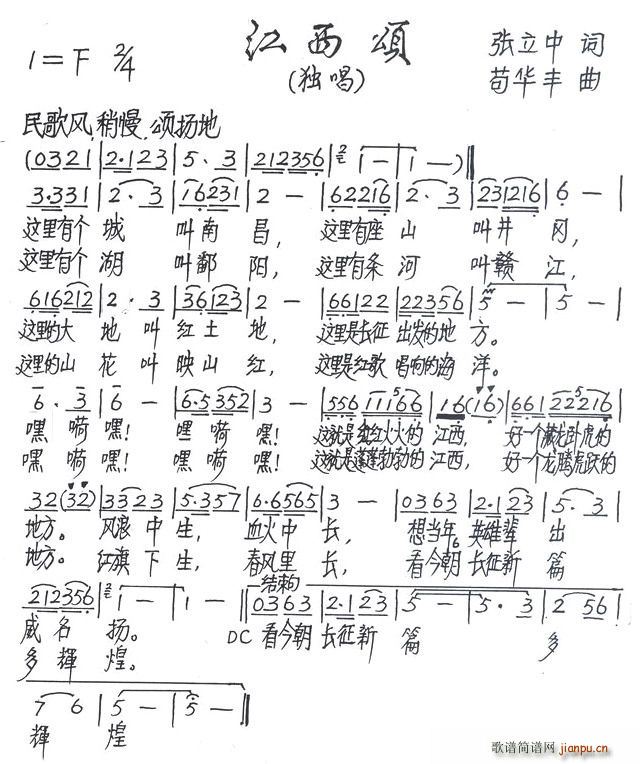 江西颂
(独唱)
1=F 2/4
张立中 词
苟华丰 曲
民歌风,稍慢,颂扬地
(0321|2·123|5·3|212356|2/i-|i-)‖
3·331|2·3|16231|2-|62216|2·3|231216|6-|
这里有个 城 叫南 昌, 这里有座 山 叫井 冈,
这里有个 湖 叫鄱 阳, 这里有条 河 叫赣 江,
616212|2·3|36123|2-|66122|22356|5-|5-|
这里的大 地 叫 红土 地, 这里是长征 出发的地 方。
这里的山 花 叫 映山 红, 这里是红歌 唱响的海 洋。
6·3|6-|6·5352|3-|556 11166|16(16)|661 22216|
嘿 嗬 嘿! 嘿 嗬 嘿! 这就是红红火火的 江西, 好一个藏龙卧虎的
嘿 嗬 嘿! 嘿 嗬 嘿! 这就是蓬蓬勃勃的 江西, 好一个龙腾虎跃的
32(32)|3323|5·357|6·6565|3-|0363|2·123|5·3|
地方。 风浪 中 生, 血火中 长, 想当年 英雄辈 出
地方。 红旗 下 生, 春风里 长, 看今朝 长征新 篇
212356|2/i-|i-‖结束句 0363|2·123|5-|5·3|2 56|
威名 扬。 DC 看今朝 长征新 篇 多
多辉 煌。
7 6|5-|5-‖
辉 煌
歌谱简谱网 jianpu.cn